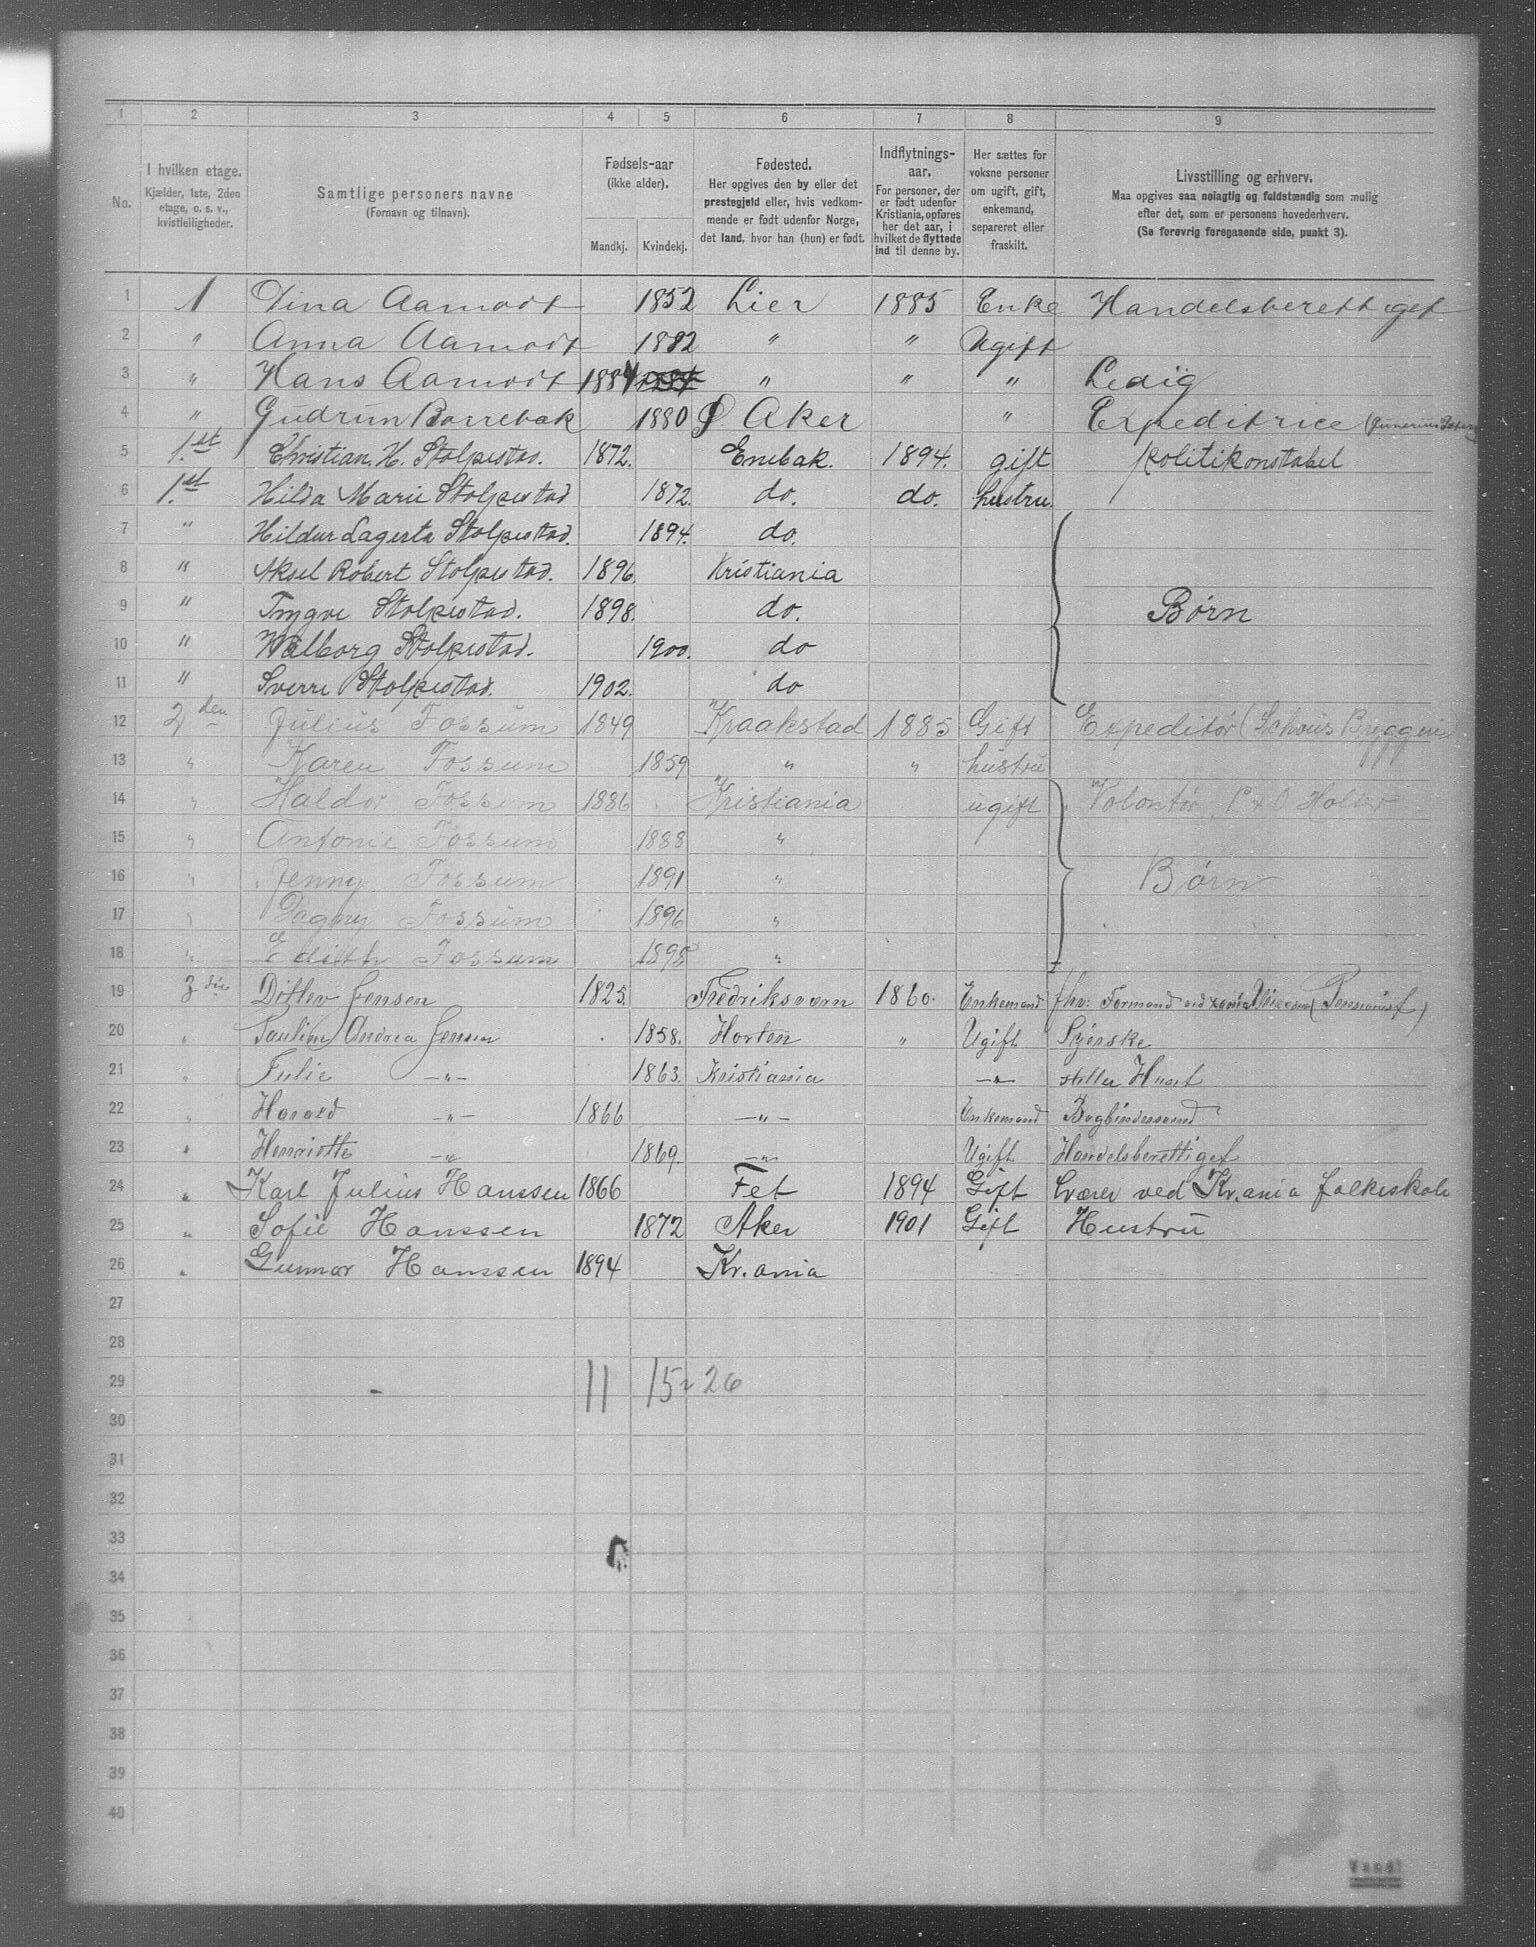 1 2 3 4 5 6 7 8 9
No. I hvilken etage. Kjælder, 1ste, 2den etage, o. s. v., kvistleiligheder. Samtlige personers navne (Fornavn og tilnavn). Fødsels-aar (ikke alder). Mandkj. Kvindekj. Fødested. Her opgives den by eller det prestegjeld eller, hvis vedkommende er født udenfor Norge, det land, hvor han (hun) er født. Indflytnings-aar. For personer, der er født udenfor Kristiania, opføres her det aar, i hvilket de flyttede ind til denne by. Her sættes for voksne personer om ugift, gift, enkemand, separeret eller fraskilt. Livsstilling og erhverv. Maa opgives saa nøiagtig og fuldstændig som mulig efter det, som er personens hovederhverv. (Se forøvrig foregaaende side, punkt 3).
1 1 Dina Aamodt 1852 Lier 1885 Enke Handelsberettiget
2 " Anna Aamodt 1882 " " Ugift
3 " Hans Aamodt 1884 " " " Ledig
4 " Gudrun Borrebæk 1880 Ø. Aker " Expeditrice
5 1.st Christian. H. Stolpestad. 1872. Enebak. 1894. gift politikonstabel
6 1.st Hilda Marie Stolpestad 1872. do. do. hustru.
7 " Hildur Lagerta Stolpestad. 1894. do.
8 " Aksel Robert Stolpestad. 1896. Kristiania
9 " Trygve Stolpestad. 1898. do. Børn
10 " Walborg Stolpestad. 1900. do
11 " Sverre Stolpestad. 1902. do
12 2den Julius Fossum 1849 Kraakstad 1885 Gift Expeditør (Schous Byggeri
13 " Karen Fossum 1859 " " hustru
14 " Haldor Fossum 1886 Kristiania ugift Volontør, P. & O. Holter
15 " Antonie Fossum 1888 "
16 " Jenny Fossum 1891 " Børn
17 " Dagny Fossum 1896 "
18 " Edith Fossum 1898 "
19 3die Ditlev Jensen 1825. Fredriksværn 1860. Enkemand fhv: Formand ved (Pensionist)
20 " Pauline Andrea Jensen 1858. Horten " Ugift Syerske
21 " Julie —"— 1863. Kristiania —"— steller Huset
22 " Harald —"— 1866 —"— Enkemand Bogbindersvend
23 " Henriette —"— 1869. —"— Ugift Handelsberettiget
24 " Karl Julius Hanssen 1866 Fet 1894 Gift Lærer ved Kr.ania folkeskole
25 " Sofie Hanssen 1872 Aker 1901 Gift Hustru
26 " Gunnar Hanssen 1894 Kr.ania
27
28
29 11 15 26
30
31
32
33
34
35
36
37
38
39
40
Vend!